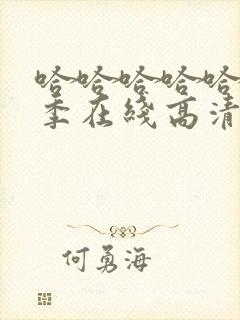 哈哈哈哈哈
季在线高清
何勇海